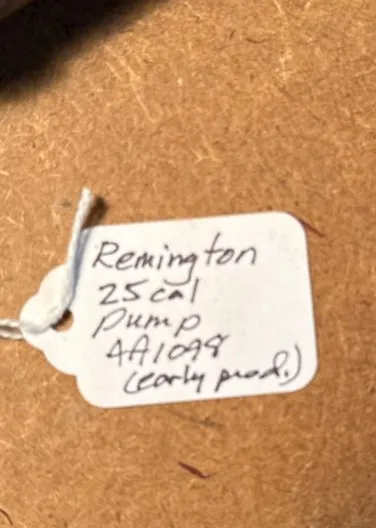 Remington
25 cal
Pump
AA1098
(early prod.)